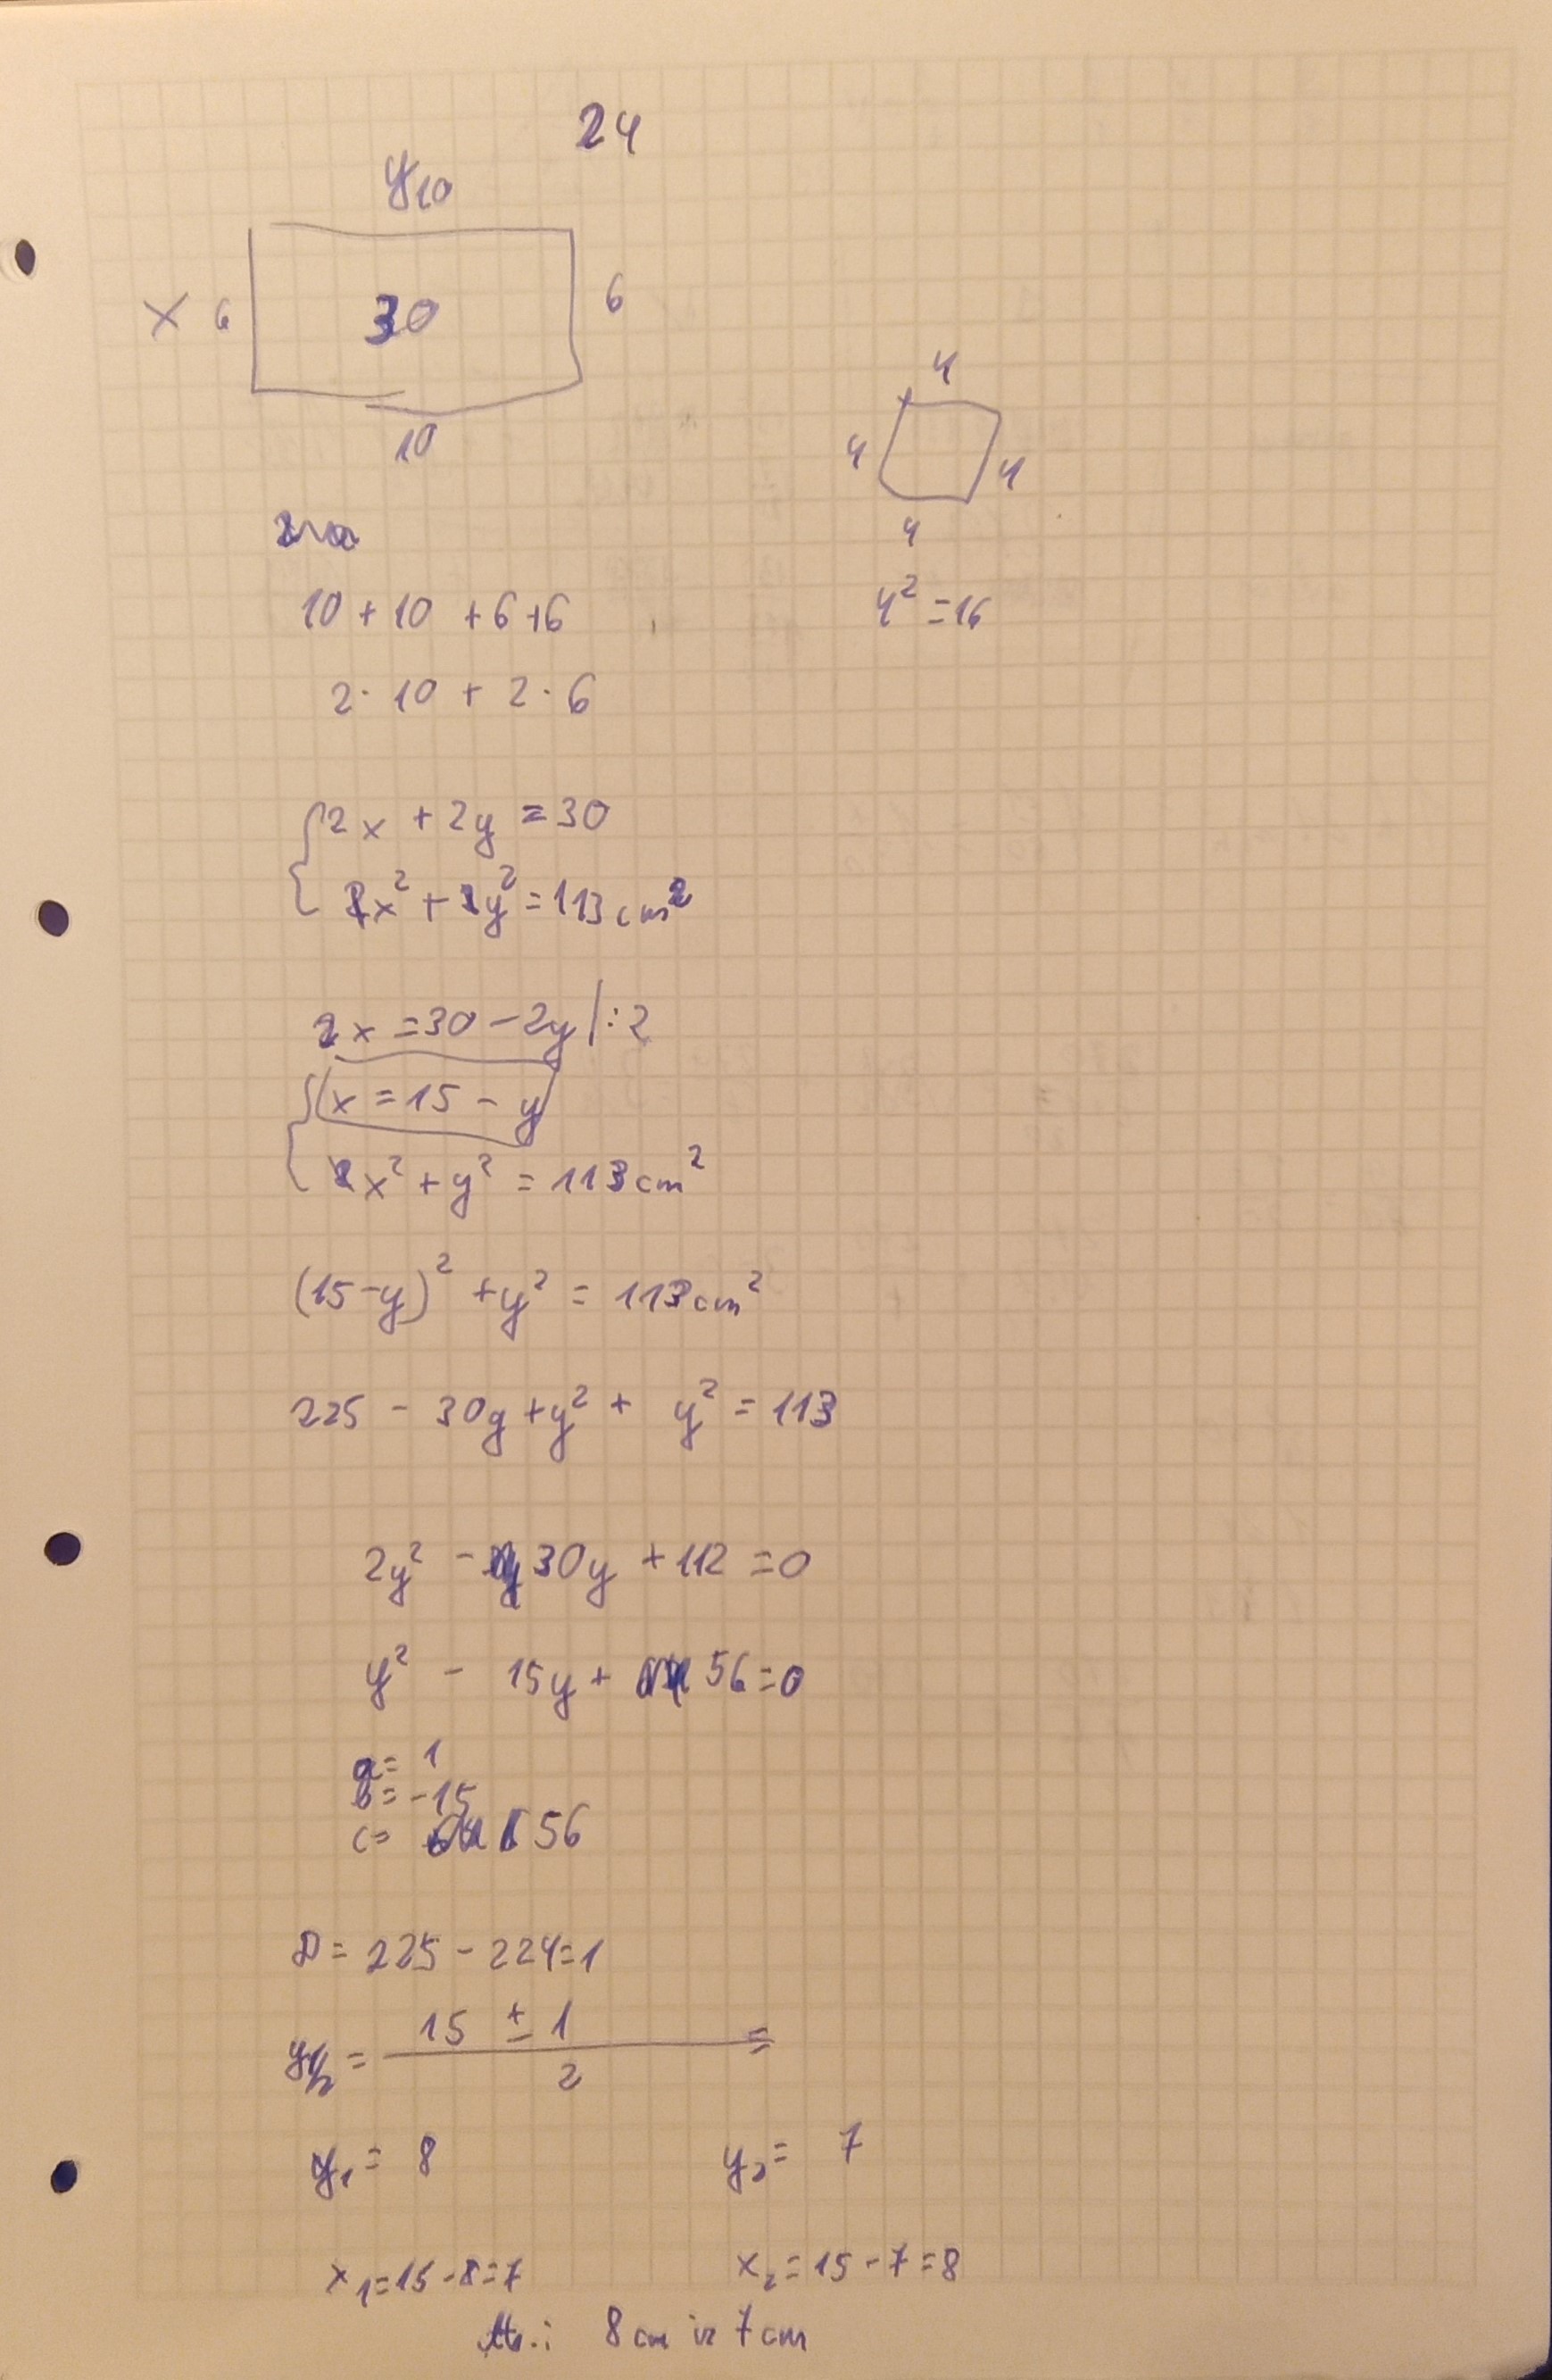 24
y 10
x 6
30
6
10
4
4
4
4
4² = 16
10 + 10 + 6 + 6
2 · 10 + 2 · 6
2x + 2y = 30
x² + y² = 113 cm²
2x = 30 - 2y | : 2
x = 15 - y
x² + y² = 113 cm²
(15 - y)² + y² = 113 cm²
225 - 30y + y² + y² = 113
2y² - 30y + 112 = 0
y² - 15y + 56 = 0
a = 1
b = -15
c = 56
D = 225 - 224 = 1
= 15 ± 1 / 2 =
y₁ = 8
y₂ = 7
x₁ = 15 - 8 = 7
x₂ = 15 - 7 = 8
8 cm ir 7 cm